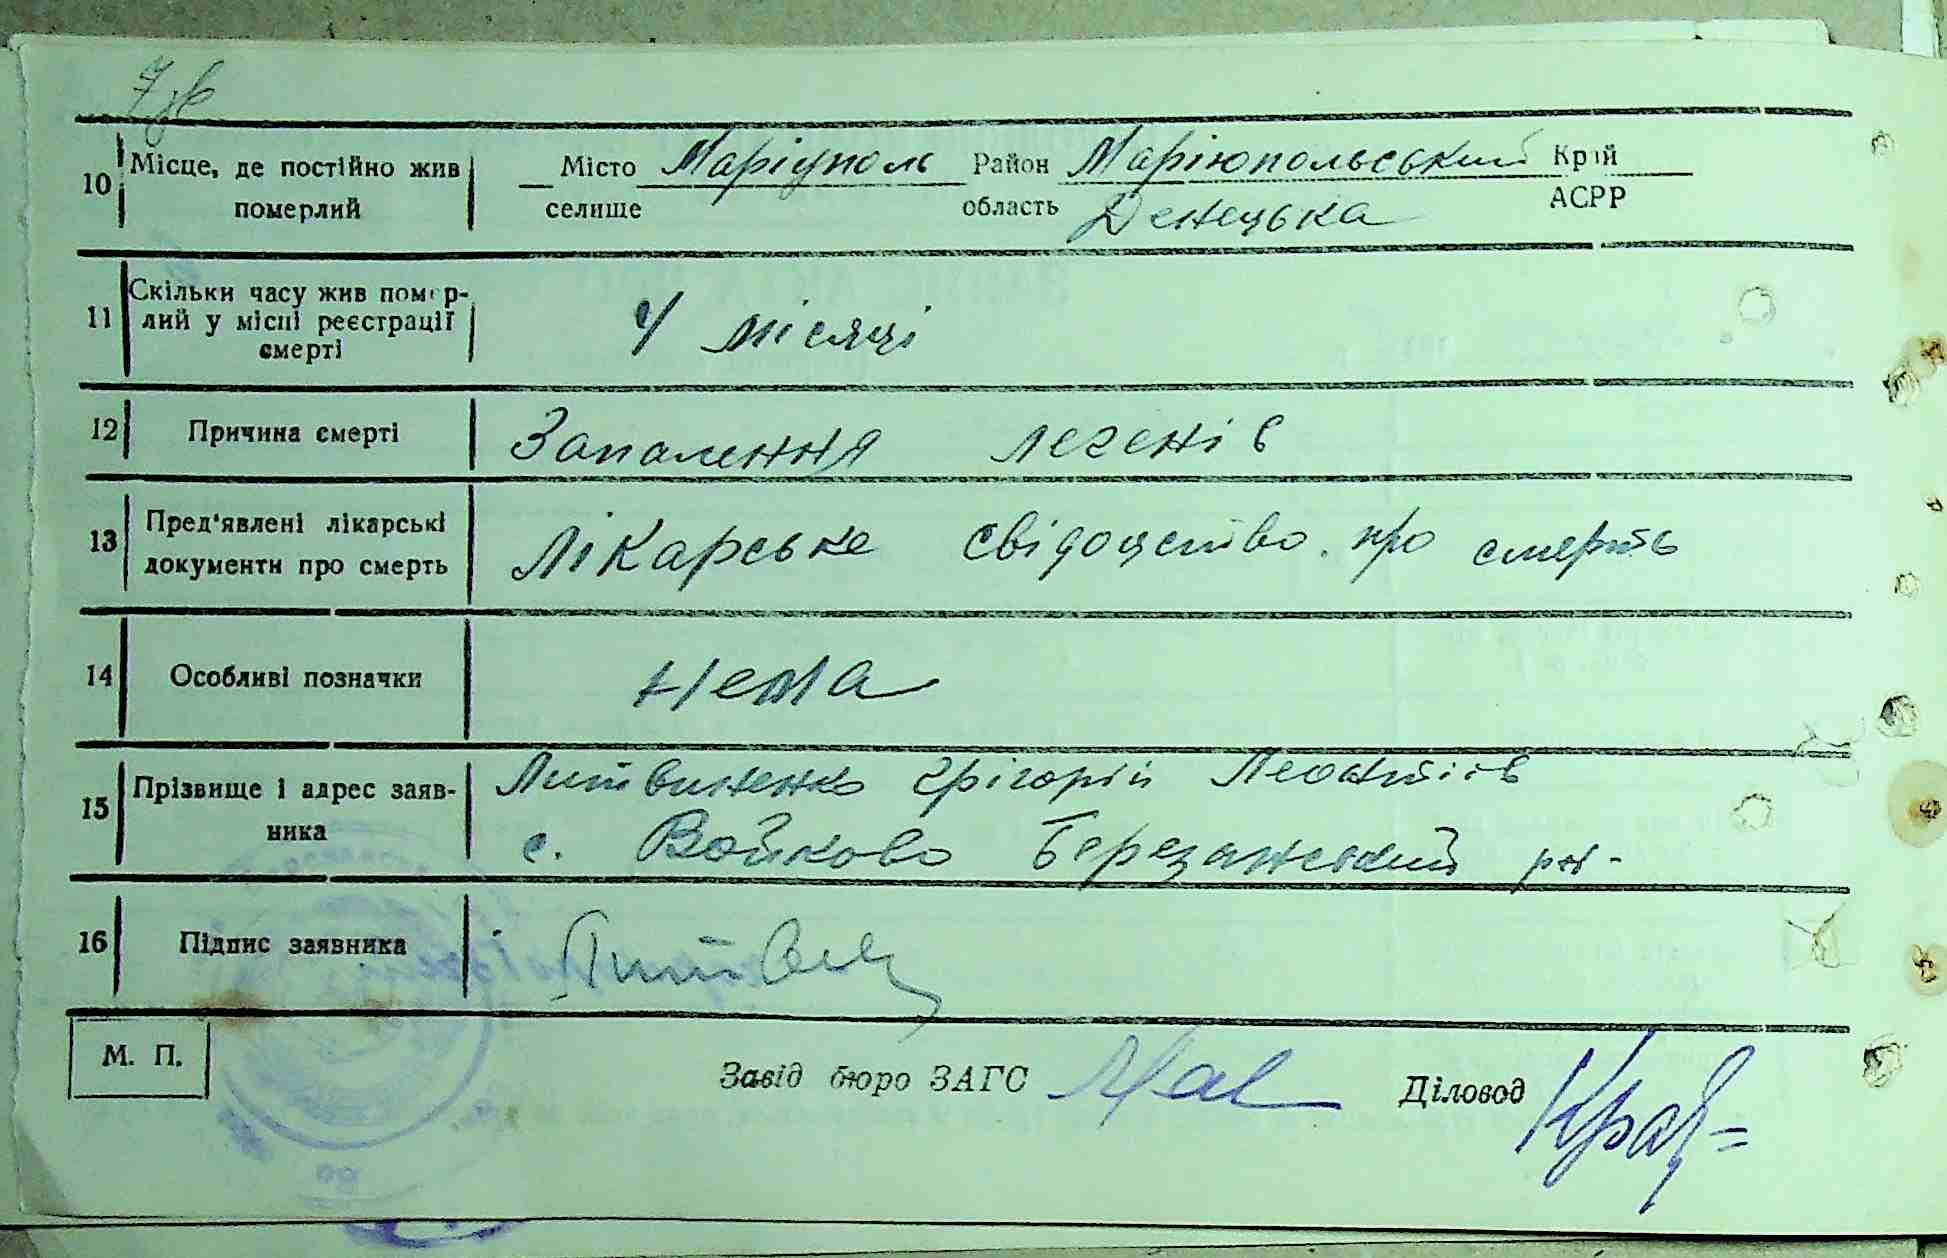 7зв
10 Місце, де постійно жив Місто Маріуполь Район Маріюпольський Край
померлий селище область Донецька АСРР
11 Скільки часу жив помер-
лий у місці реєстрації 4 місяці
смерті
12 Причина смерті Запалення легенів
13 Пред'явлені лікарські Лікарське свідоцтво про смерть
документи про смерть
14 Особливі позначки нема
15 Прізвище і адрес заяв- Литвиненко Грігорій Леонтіїв
ника с. Войково Березанський рн-
16 Підпис заявника Литвин
М. П. Завід бюро ЗАГС Діловод